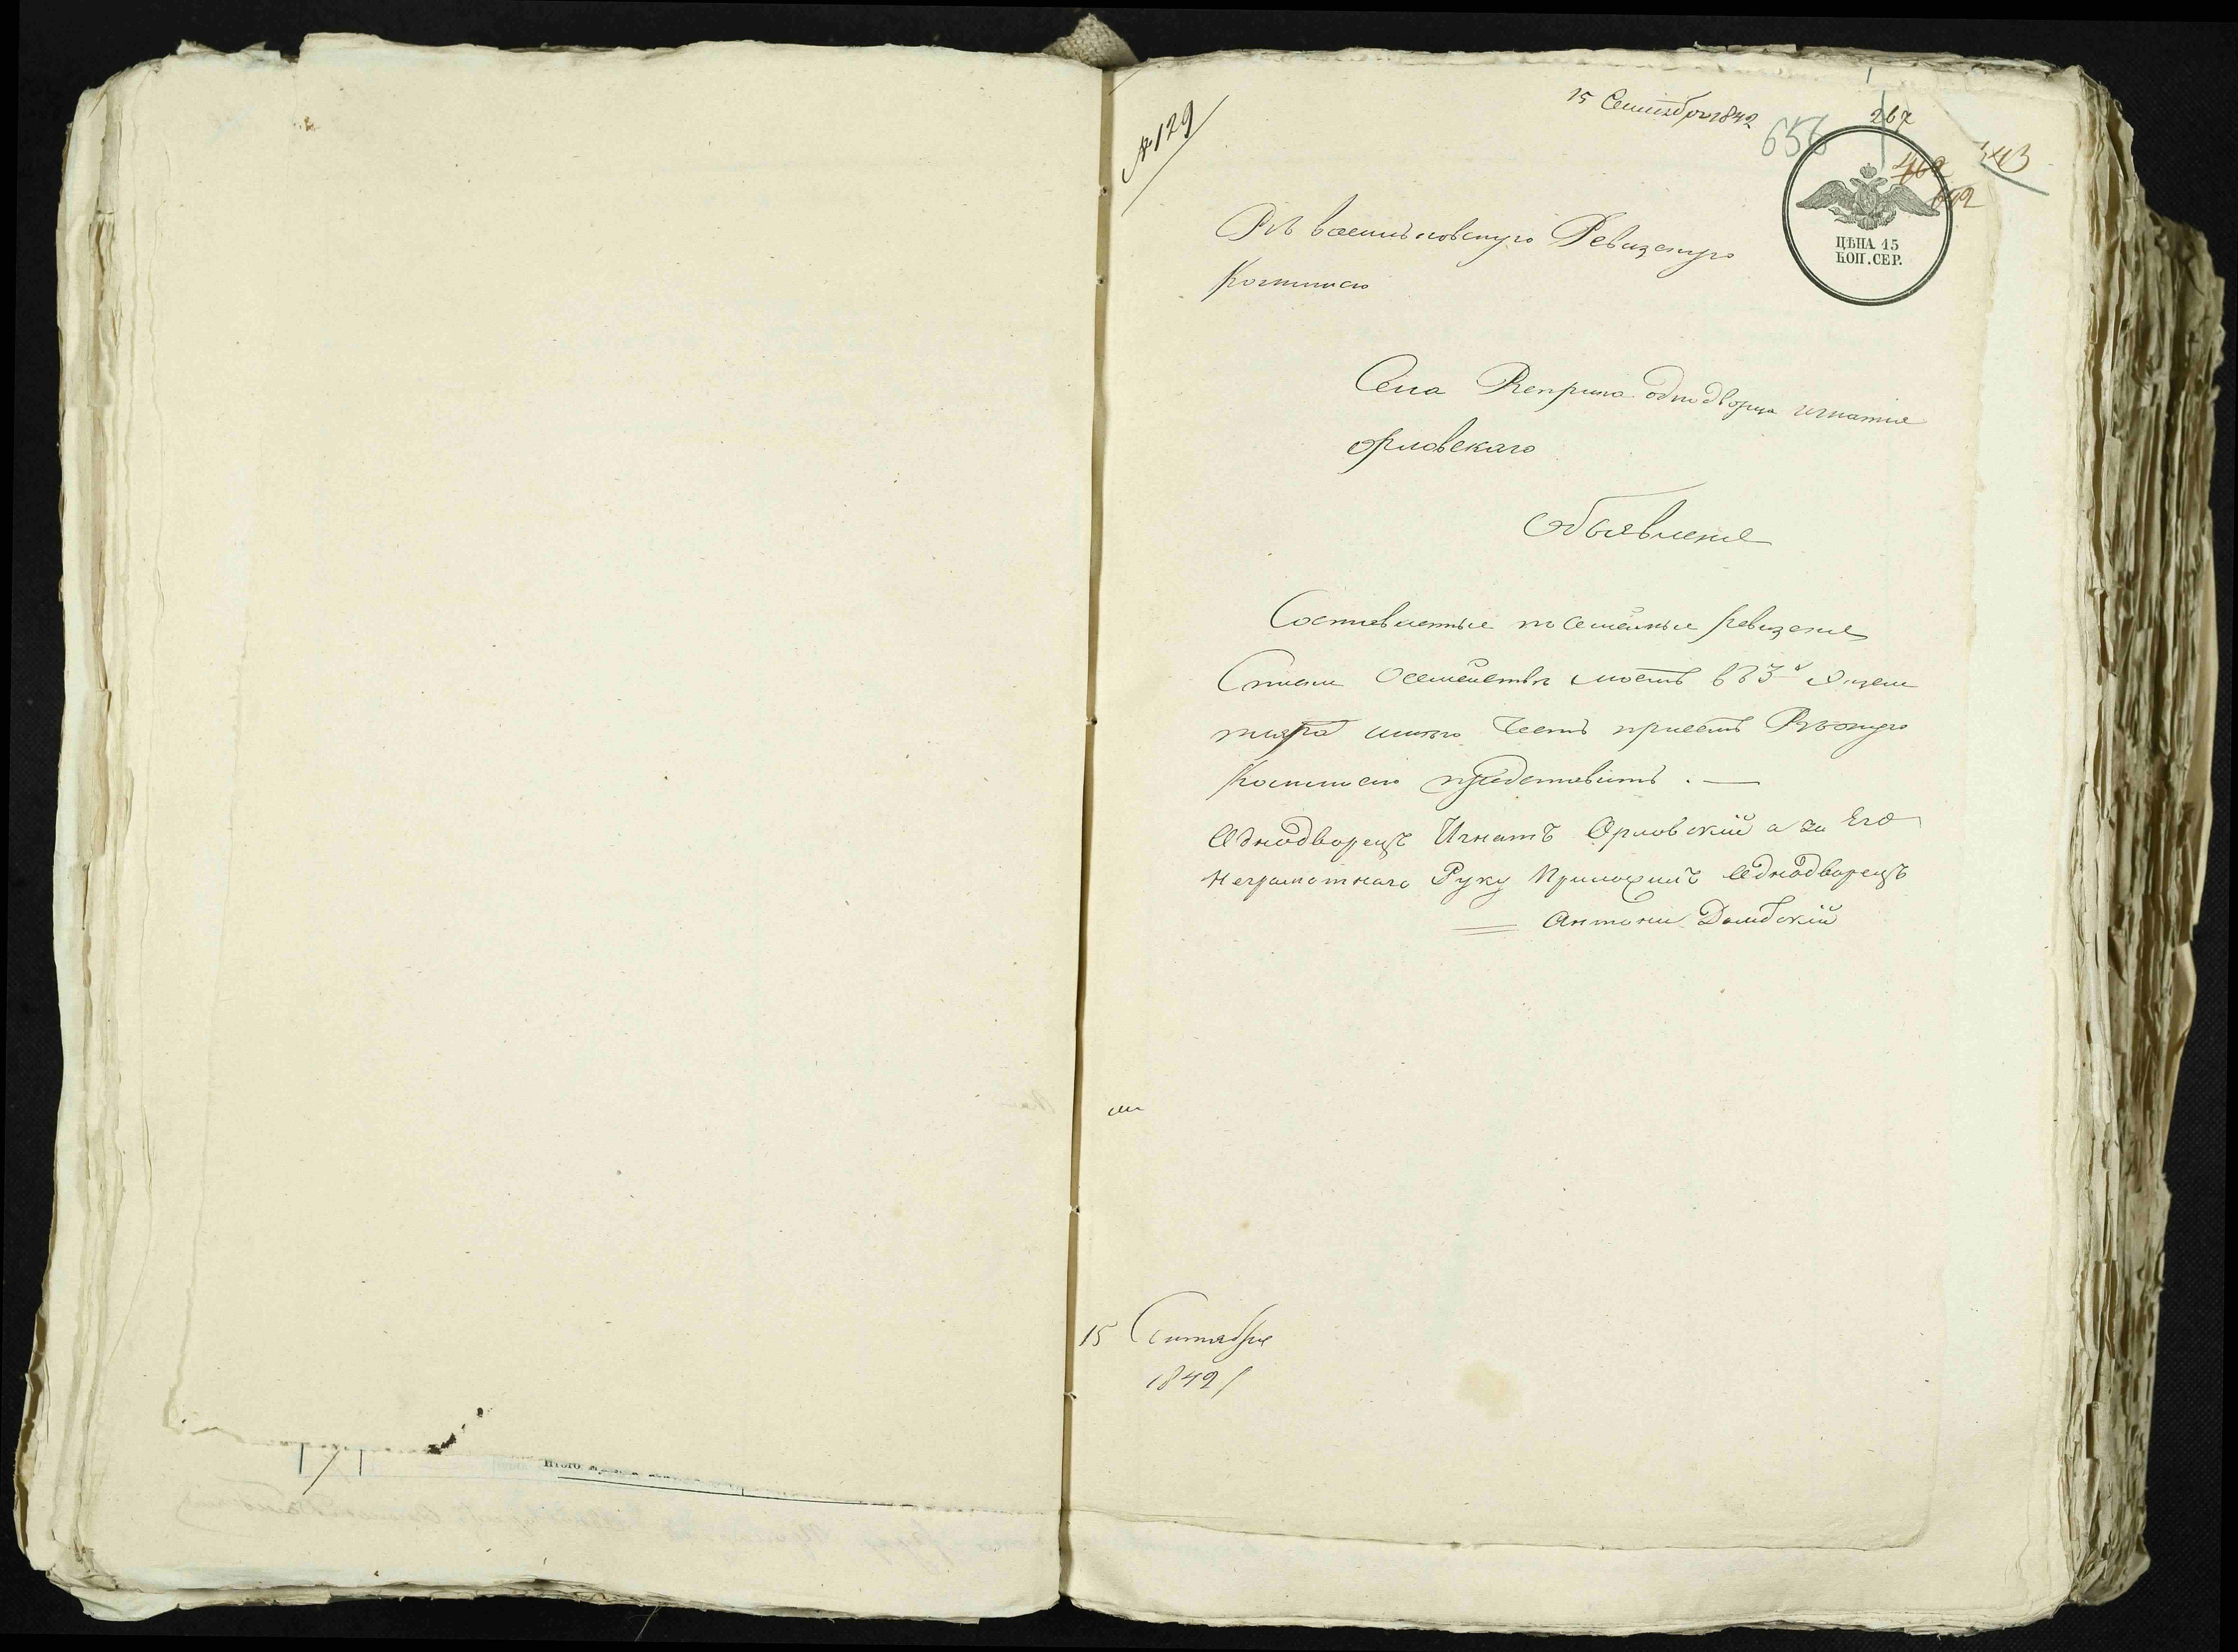 № 129
15 Сентября 1842
656
267
462
692
ЦѢНА 15
КОП. СЕР.
Въ васильковскую Ревизскую
Коммисію
Села однодворца игнатія
орловскаго
Объявленіе
Составленные посемейные ревизскіе
Сказки о семействе моемъ въ 3й
имею честь при семъ въ оную
Коммисію представить. —
Однодворецъ Игнатъ Орловскій а за Его
Неграмотнаго Руку Приложилъ Однодворецъ
Антони Домбскій
15 Сентября
1842
Итого